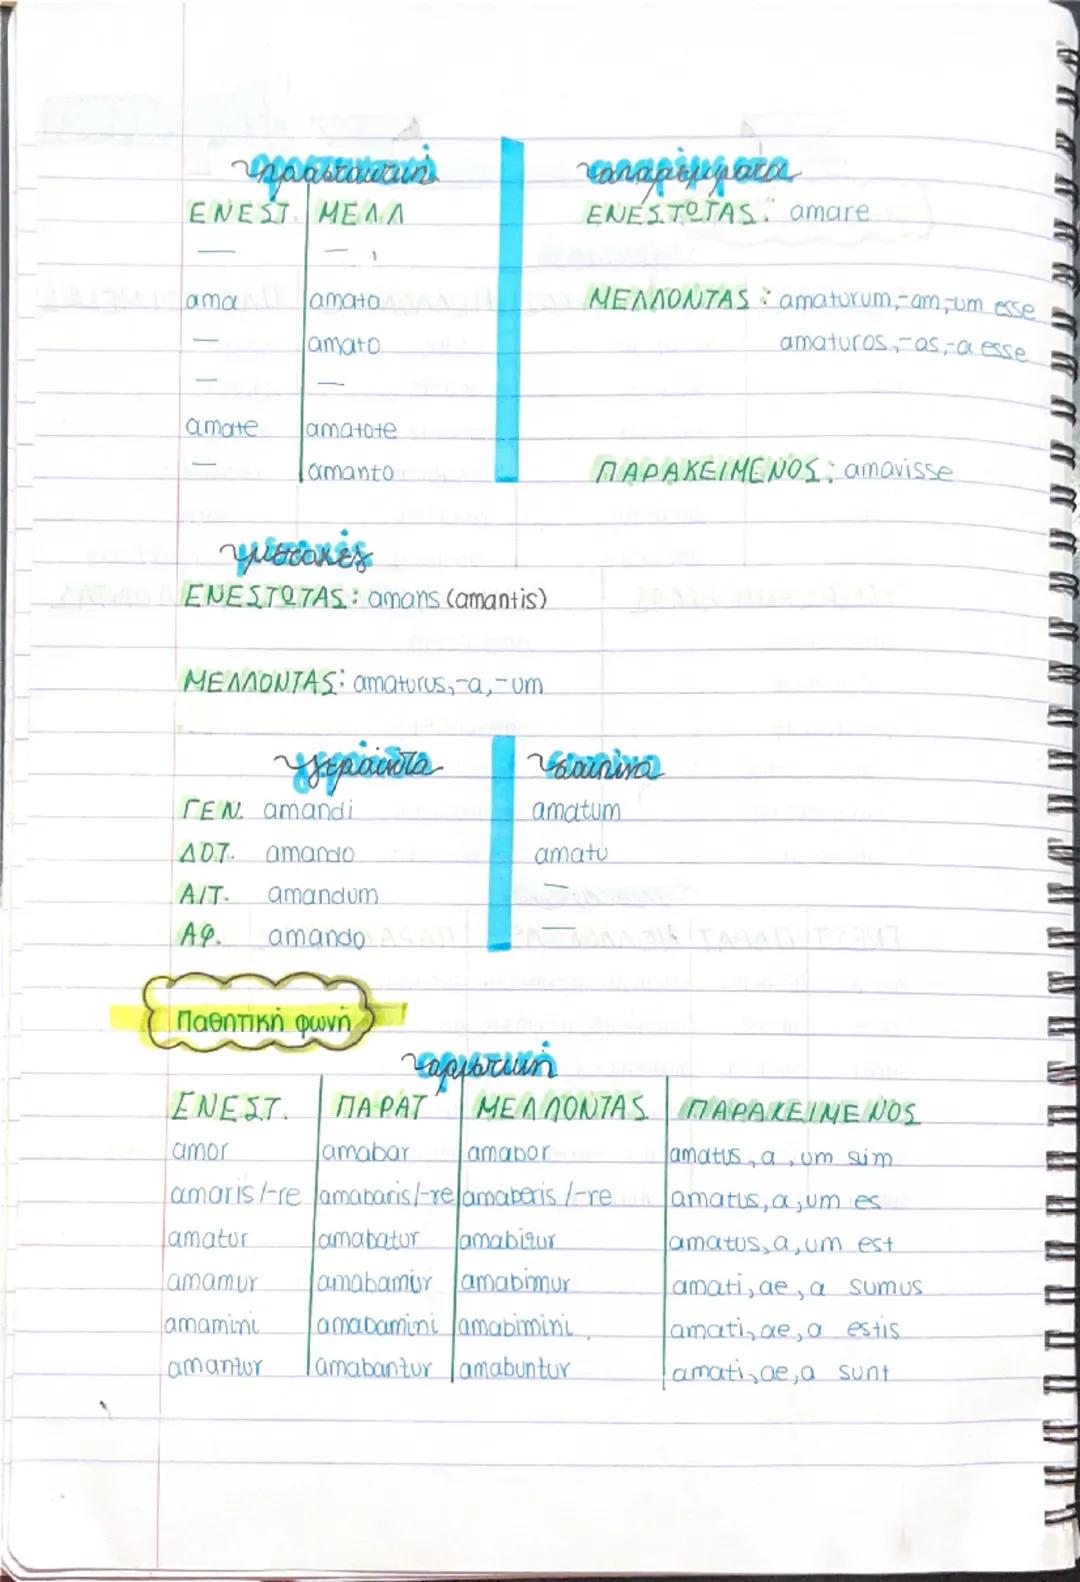 προστακτική
ΕΝΕΣΤ. ΜΕΛΛ
— —
ama amato
— amato
— —
amate amatote
— amanto
απαρέμφατα
ΕΝΕΣΤΩΤΑΣ: amare
ΜΕΛΛΟΝΤΑΣ: amaturum,-am,-um esse
amaturos,-as,-a esse
ΠΑΡΑΚΕΙΜΕΝΟΣ: amavisse
μετοχές
ΕΝΕΣΤΩΤΑΣ: amans (amantis)
ΜΕΛΛΟΝΤΑΣ: amaturus,-a,-um
γερούνδια
ΓΕΝ. amandi
ΔΟΤ. amando
ΑΙΤ. amandum
ΑΦ. amando
σουπίνα
amatum
amatu
—
—
Παθητική φωνή
οριστική
ΕΝΕΣΤ. ΠΑΡΑΤ ΜΕΛΛΟΝΤΑΣ ΠΑΡΑΚΕΙΜΕΝΟΣ
amor amabar amabor amatus, a, um sim
amaris/-re amabaris/-re amaberis/-re amatus, a, um es
amatur amabatur amabitur amatus, a, um est
amamur amabamur amabimur amati, ae, a sumus
amamini amabamini amabimini amati, ae, a estis
amantur amabantur amabuntur amati, ae, a sunt